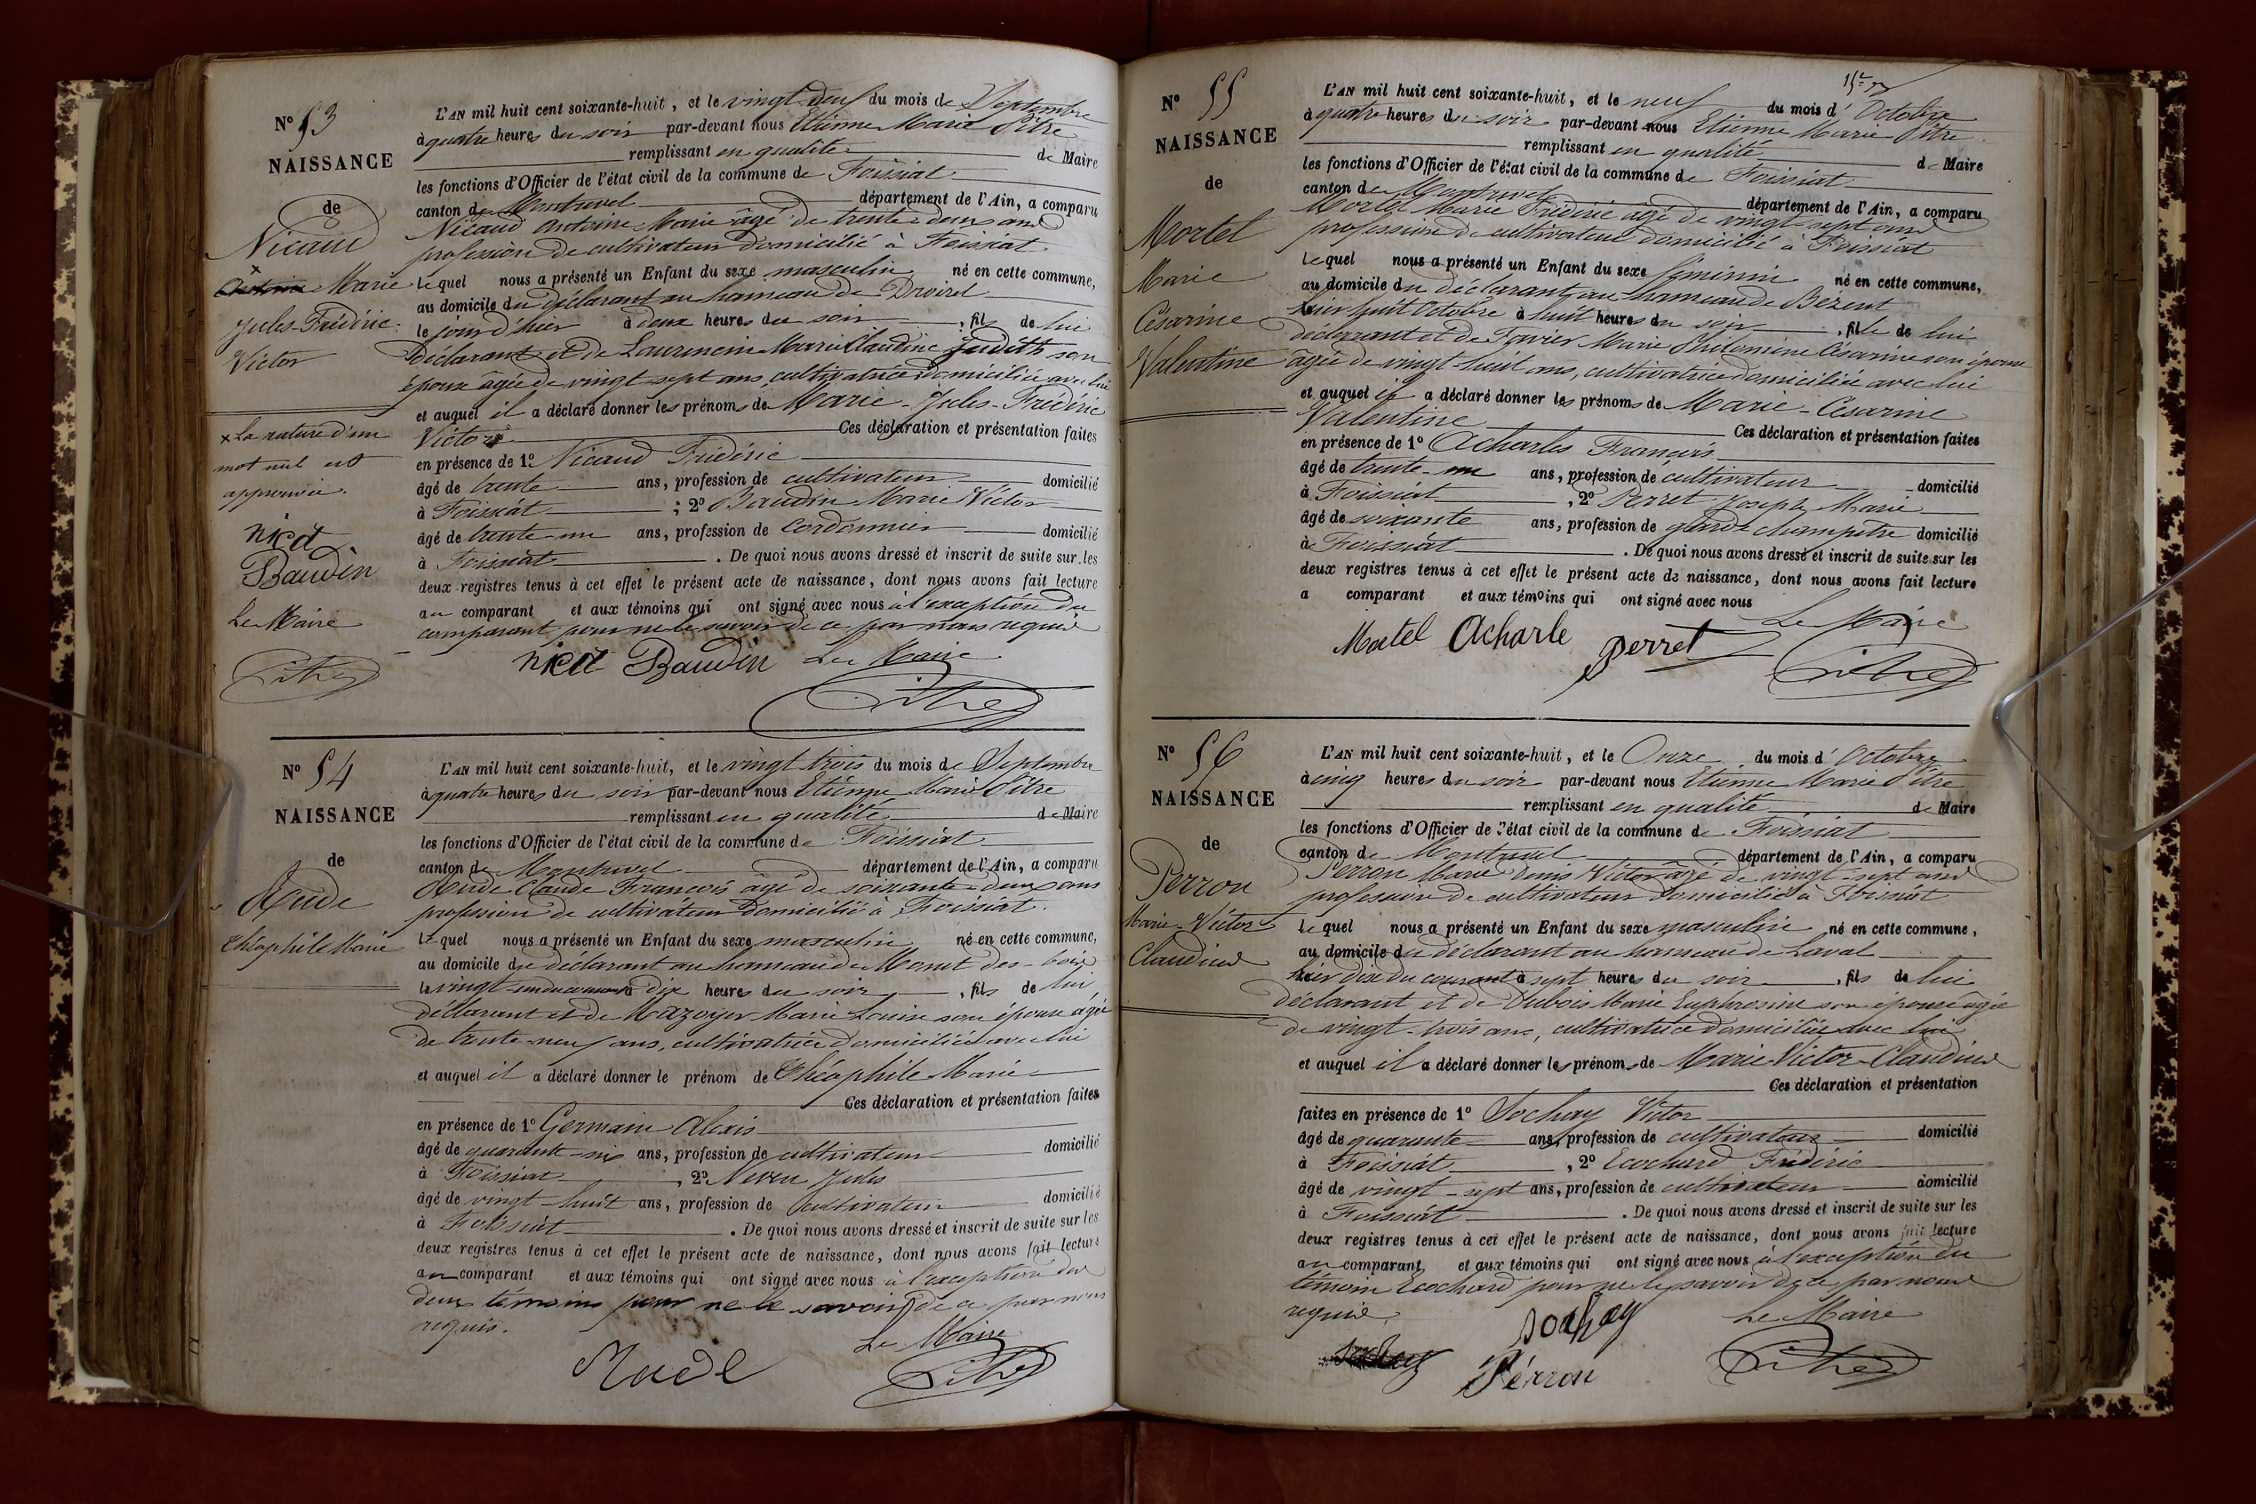 Nº 53
NAISSANCE
de
Nicaud
x
Marie
Jules Frédéric
Victor
x La rature d'un
mot nul est
approuvée.
nicd
Baudin
Le Maire
Pitre
L'AN mil huit cent soixante-huit, et le vingt-deux du mois de Septembre
à quatre heures du soir par-devant nous Etienne Marie Pitre
remplissant en qualité de Maire
les fonctions d'Officier de l'état civil de la commune de Foissiat
canton de Montrevel département de l'Ain, a comparu
Nicaud Antoine Marie âgé de trente-deux ans
profession de cultivateur domicilié à Foissiat
lequel nous a présenté un Enfant du sexe masculin né en cette commune,
au domicile du déclarant au hameau de
le jour d'hier à deux heures du soir, fils de lui
déclarant et de Laurencin Marie Claudine Judith son
épouse âgée de vingt-sept ans, cultivatrice domiciliée avec lui
et auquel il a déclaré donner les prénoms de Marie-Jules-Frédéric
Victor Ces déclaration et présentation faites
en présence de 1º Nicaud Frédéric
âgé de trente ans, profession de cultivateur domicilié
à Foissiat ; 2º Baudin Marie Victor
âgé de trente-un ans, profession de cordonnier domicilié
à Foissiat. De quoi nous avons dressé et inscrit de suite sur les
deux registres tenus à cet effet le présent acte de naissance, dont nous avons fait lecture
au comparant et aux témoins qui ont signé avec nous à l'exception du
comparant pour ne le savoir de ce par nous requis
nicd Baudin Le Maire
Pitre
Nº 54
NAISSANCE
de
Rude
Théophile Marie
L'AN mil huit cent soixante-huit, et le vingt trois du mois de Septembre
à quatre heures du soir par-devant nous Etienne Marie Pitre
remplissant en qualité de Maire
les fonctions d'Officier de l'état civil de la commune de Foissiat
canton de Montrevel département de l'Ain, a comparu
Rude Claude François âgé de soixante-deux ans
profession de cultivateur domicilié à Foissiat.
lequel nous a présenté un Enfant du sexe masculin né en cette commune,
au domicile du déclarant au hameau du Mont des-bois
le vingt-un du courant à dix heures du soir, fils de lui
déclarant et de Mazoyer Marie Louise son épouse âgée
de trente-neuf ans, cultivatrice domiciliée avec lui
et auquel il a déclaré donner le prénom de Théophile Marie
Ces déclaration et présentation faites
en présence de 1º Germain Alexis
âgé de quarante-six ans, profession de cultivateur domicilié
à Foissiat, 2º Neveu Jules
âgé de vingt-huit ans, profession de cultivateur domicilié
à Foissiat. De quoi nous avons dressé et inscrit de suite sur les
deux registres tenus à cet effet le présent acte de naissance, dont nous avons fait lecture
au comparant et aux témoins qui ont signé avec nous à l'exception des
deux témoins pour ne le savoir de ce par nous
requis.
Le Maire
Rude Pitre
Nº 55
NAISSANCE
de
Mortel
Marie
Césarine
Valentine
L'AN mil huit cent soixante-huit, et le neuf du mois d'Octobre
à quatre heures du soir par-devant nous Etienne Marie Pitre
remplissant en qualité de Maire
les fonctions d'Officier de l'état civil de la commune de Foissiat
canton de Montrevel département de l'Ain, a comparu
Mortel Marie Frédéric âgé de vingt-sept ans
profession de cultivateur domicilié à Foissiat
lequel nous a présenté un Enfant du sexe féminin né en cette commune,
au domicile du déclarant au hameau de Bézent
hier huit Octobre à huit heures du soir, fille de lui
déclarant et de Favier Marie Philomène Césarine son épouse
âgée de vingt-huit ans, cultivatrice domiciliée avec lui
et auquel il a déclaré donner les prénoms de Marie-Césarine
Valentine Ces déclaration et présentation faites
en présence de 1º Acharles François
âgé de trente-un ans, profession de cultivateur domicilié
à Foissiat, 2º Perret Joseph Marie
âgé de soixante ans, profession de garde champêtre domicilié
à Foissiat. De quoi nous avons dressé et inscrit de suite sur les
deux registres tenus à cet effet le présent acte de naissance, dont nous avons fait lecture
a comparant et aux témoins qui ont signé avec nous
Le Maire
Mortel Acharle Perret Pitre
Nº 56
NAISSANCE
de
Perron
Marie-Victor
Claudius
L'AN mil huit cent soixante-huit, et le Onze du mois d'Octobre
à cinq heures du soir par-devant nous Etienne Marie Pitre
remplissant en qualité de Maire
les fonctions d'Officier de l'état civil de la commune de Foissiat
canton de Montrevel département de l'Ain, a comparu
Perron Marie Denis Victor âgé de vingt-sept ans
profession de cultivateur domicilié à Foissiat
lequel nous a présenté un Enfant du sexe masculin né en cette commune,
au domicile du déclarant au hameau de Laval
hier dix du courant à sept heures du soir, fils de lui
déclarant et de Dubois Marie Euphrosine son épouse âgée
de vingt-trois ans, cultivatrice domiciliée avec lui
et auquel il a déclaré donner les prénoms de Marie-Victor-Claudius
Ces déclaration et présentation
faites en présence de 1º Sochay Victor
âgé de quarante ans, profession de cultivateur domicilié
à Foissiat, 2º Ecochard Frédéric
âgé de vingt-sept ans, profession de cultivateur domicilié
à Foissiat. De quoi nous avons dressé et inscrit de suite sur les
deux registres tenus à cet effet le présent acte de naissance, dont nous avons fait lecture
au comparant et aux témoins qui ont signé avec nous à l'exception du
témoin Ecochard pour ne le savoir de ce par nous
requis.
Sochay Le Maire
Pérron Pitre